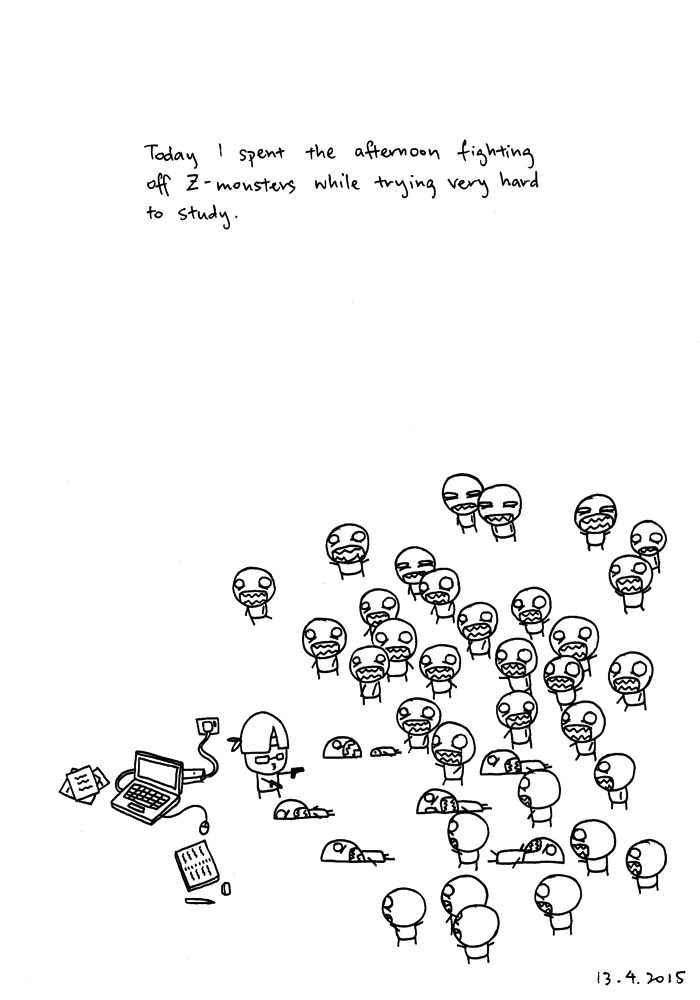 Today I spent the afternoon fighting
off Z-monsters while trying very hard
to study.
13.4.2015